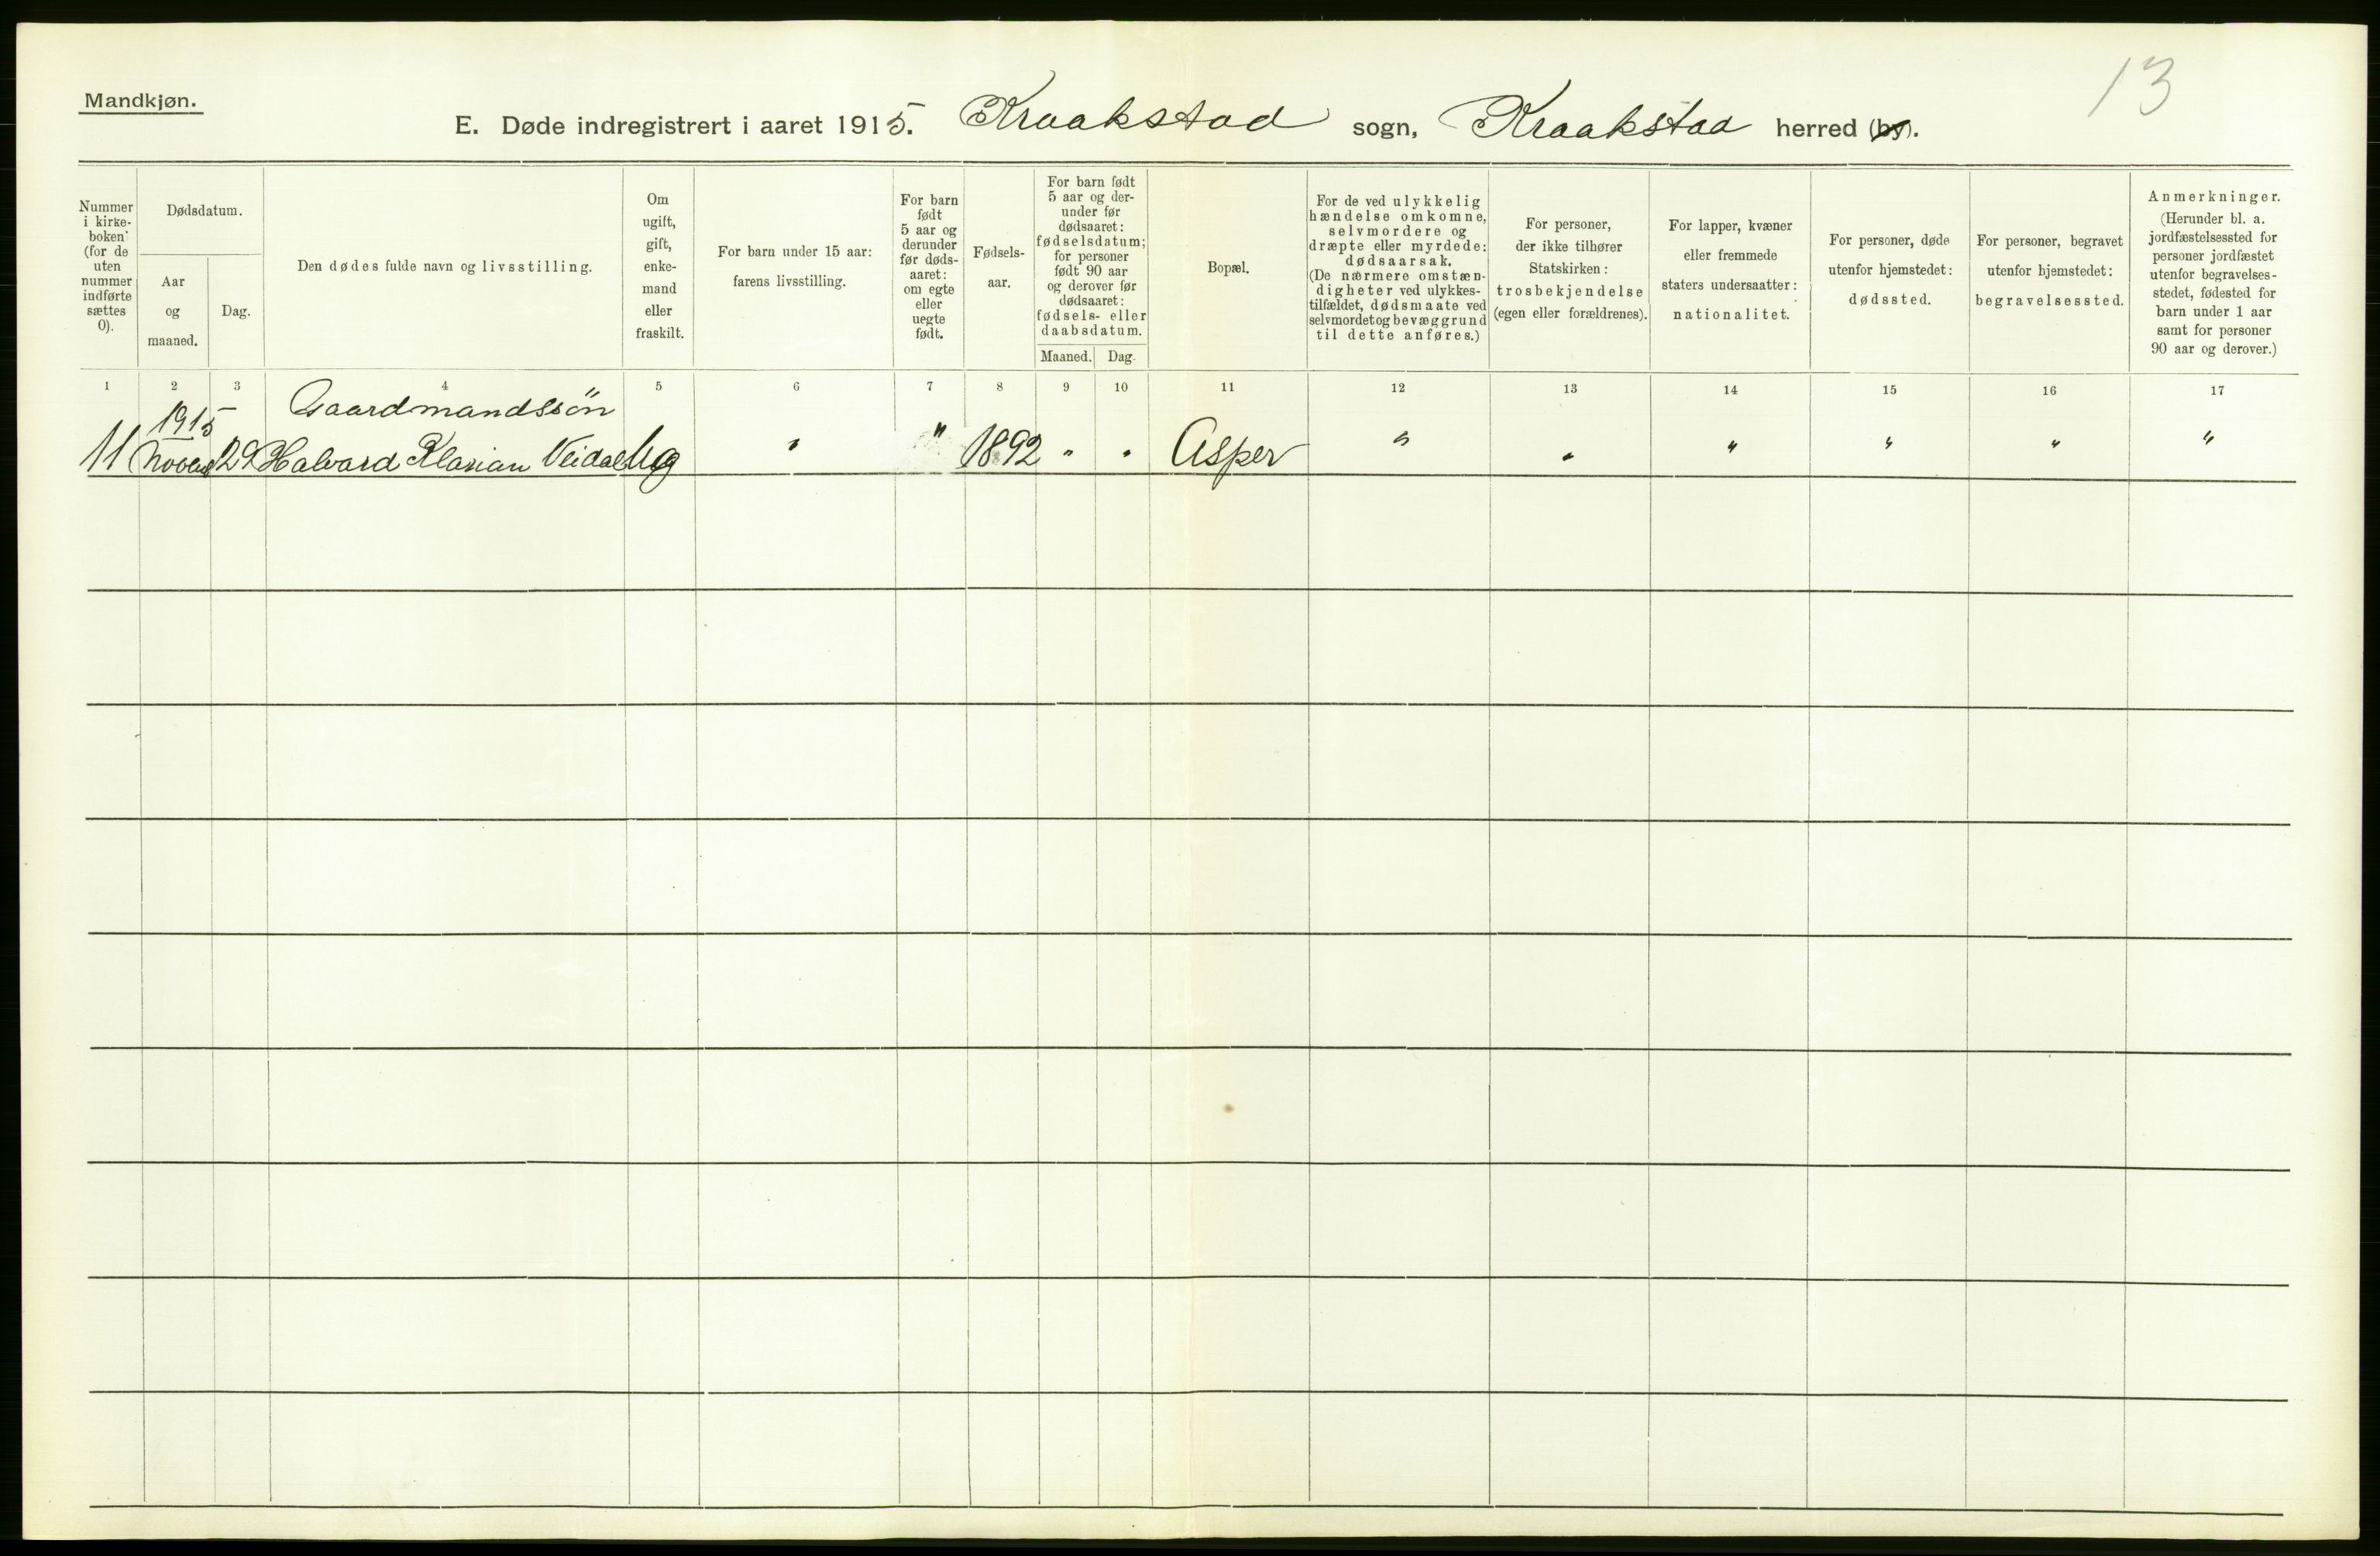 13
Mandkjøn.
E. Døde indregistrert i aaret 1915. Kraakstad sogn, Kraakstad herred (by).
Nummer
i kirke-
boken
(for de
uten
nummer
indførte
sættes
0).
Dødsdatum.
Aar
og
maaned.
Dag.
Den dødes fulde navn og livsstilling.
Om
ugift,
gift,
enke-
mand
eller
fraskilt.
For barn under 15 aar:
farens livsstilling.
For barn
født
5 aar og
derunder
før døds-
aaret:
om egte
eller
uegte
født.
Fødsels-
aar.
For barn født
5 aar og der-
under før
dødsaaret:
fødselsdatum;
for personer
født 90 aar
og derover før
dødsaaret:
fødsels- eller
daabsdatum.
Maaned.
Dag.
Bopæl.
For de ved ulykkelig
hændelse omkomne,
selvmordere og
dræpte eller myrdede:
dødsaarsak.
(De nærmere omstæn-
digheter ved ulykkes-
tilfældet, dødsmaate ved
selvmordet og bevæggrund
til dette anføres.)
For personer,
der ikke tilhører
Statskirken:
trosbekjendelse
(egen eller forældrenes).
For lapper, kvæner
eller fremmede
staters undersaatter:
nationalitet.
For personer, døde
utenfor hjemstedet:
dødssted.
For personer, begravet
utenfor hjemstedet:
begravelsessted.
Anmerkninger.
(Herunder bl. a.
jordfæstelsessted for
personer jordfæstet
utenfor begravelses-
stedet, fødested for
barn under 1 aar
samt for personer
90 aar og derover.)
1 2 3 4 5 6 7 8 9 10 11 12 13 14 15 16 17
1915 Gaardmandssön
11 29 Halvard Klavian Ug " " 1892 " " Asper " " " " " "